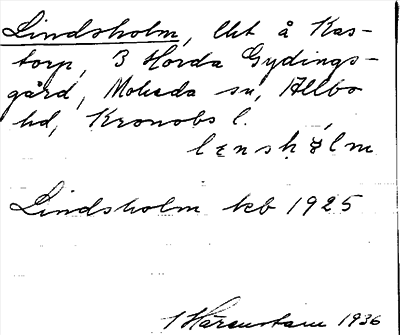 Lindsholm, lht å Kas-
torp, 3 Horda Gydings-
gård, Moheda sn, Allbo
hd, Kronobs l.
lɛnshɷlm
Lindsholm kb 1925
1936